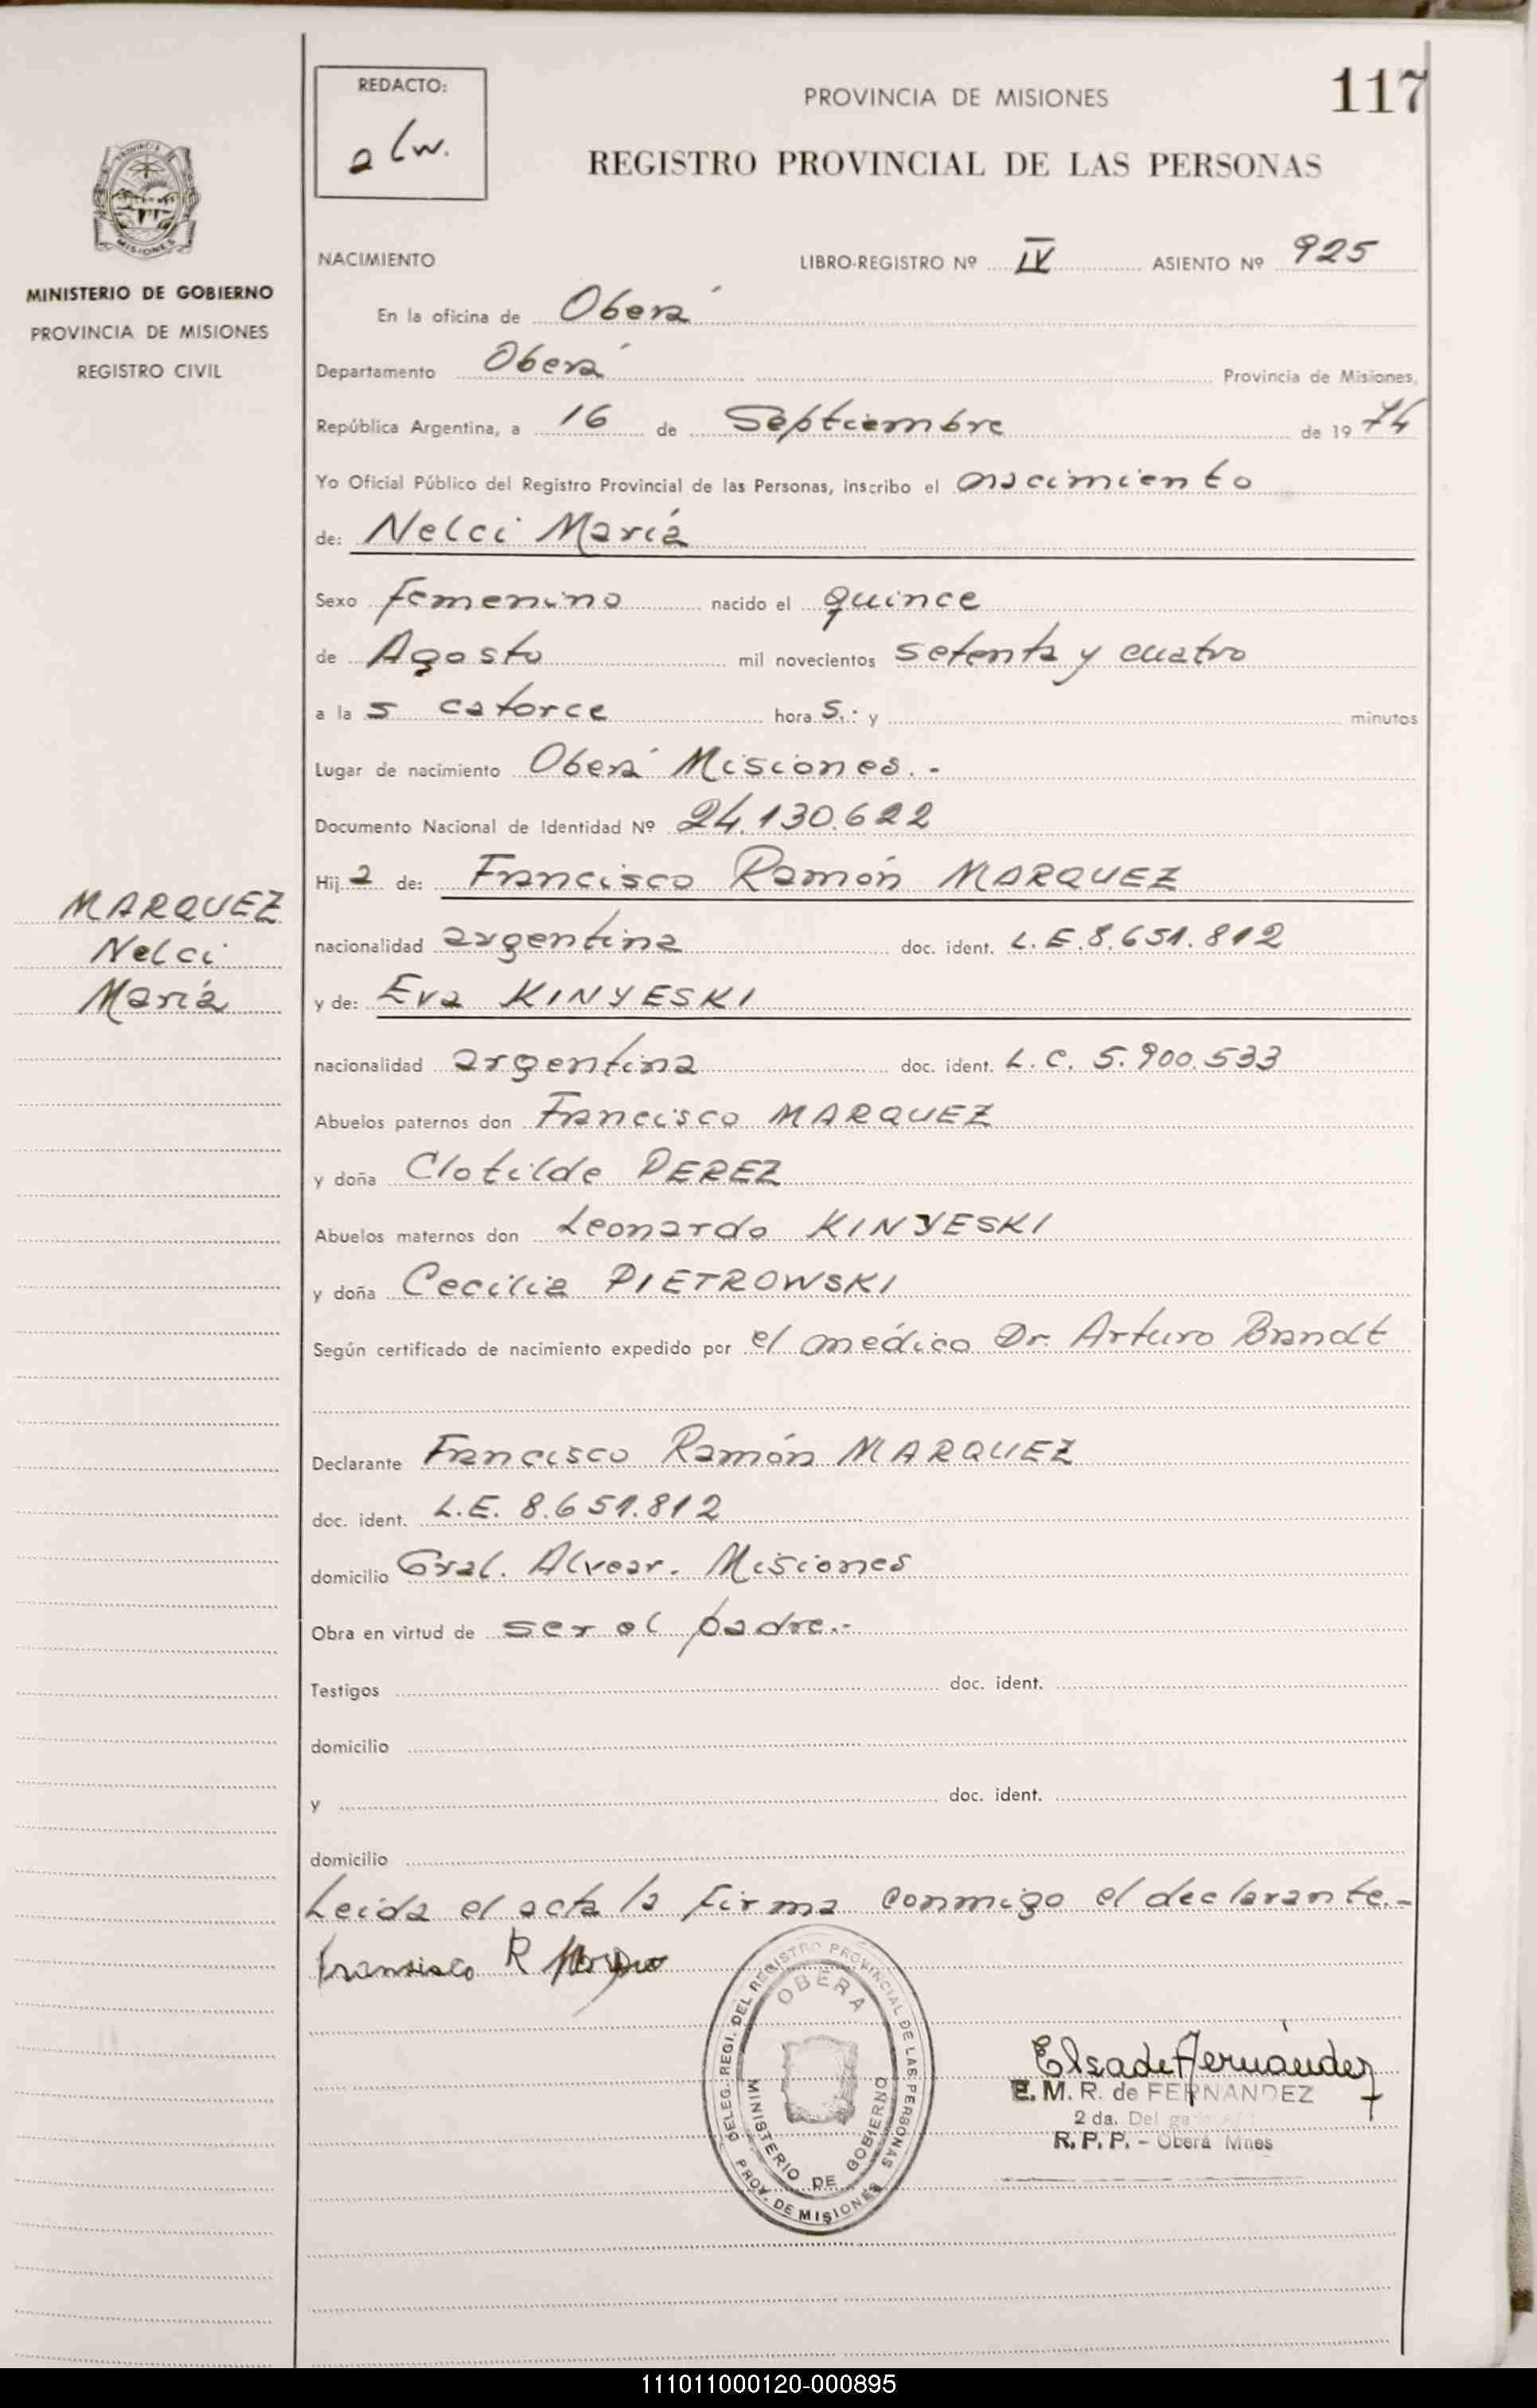 REDACTO:
alw.
PROVINCIA DE MISIONES
117
REGISTRO PROVINCIAL DE LAS PERSONAS
PROVINCIA DE
MISIONES
MINISTERIO DE GOBIERNO
PROVINCIA DE MISIONES
REGISTRO CIVIL
NACIMIENTO LIBRO-REGISTRO Nº IV ASIENTO Nº 925
En la oficina de Oberá
Departamento Oberá Provincia de Misiones,
República Argentina, a 16 de Septiembre de 1974
Yo Oficial Público del Registro Provincial de las Personas, inscribo el nacimiento
de: Nelci María
Sexo femenino nacido el quince
de Agosto mil novecientos setenta y cuatro
a la s catorce hora s.: y minutos
Lugar de nacimiento Oberá Misiones.-
Documento Nacional de Identidad Nº 24.130.622
Hij a de: Francisco Ramón MARQUEZ
MARQUEZ
Nelci
María
nacionalidad argentina doc. ident. L.E.8.651.812
y de: Eva KINYESKI
nacionalidad argentina doc. ident. L.C. 5.900.533
Abuelos paternos don Francisco MARQUEZ
y doña Clotilde PEREZ
Abuelos maternos don Leonardo KINYESKI
y doña Cecilia PIETROWSKI
Según certificado de nacimiento expedido por el médico Dr. Arturo Brandt
Declarante Francisco Ramón MARQUEZ
doc. ident. L.E. 8.651.812
domicilio Gral. Alvear. Misiones
Obra en virtud de ser el padre.-
Testigos doc. ident.
domicilio
y doc. ident.
domicilio
Leida el acta la firma conmigo el declarante.-
Fransisco R
DELEG. REGI. DEL REGISTRO PROVINCIAL DE LAS PERSONAS
OBERA
MINISTERIO DE GOBIERNO
PROV. DE MISIONES
Elsa de Fernández
E. M. R. de FERNANDEZ
2 da.
R. P. P. - Oberá Mnes
111011000120-000895